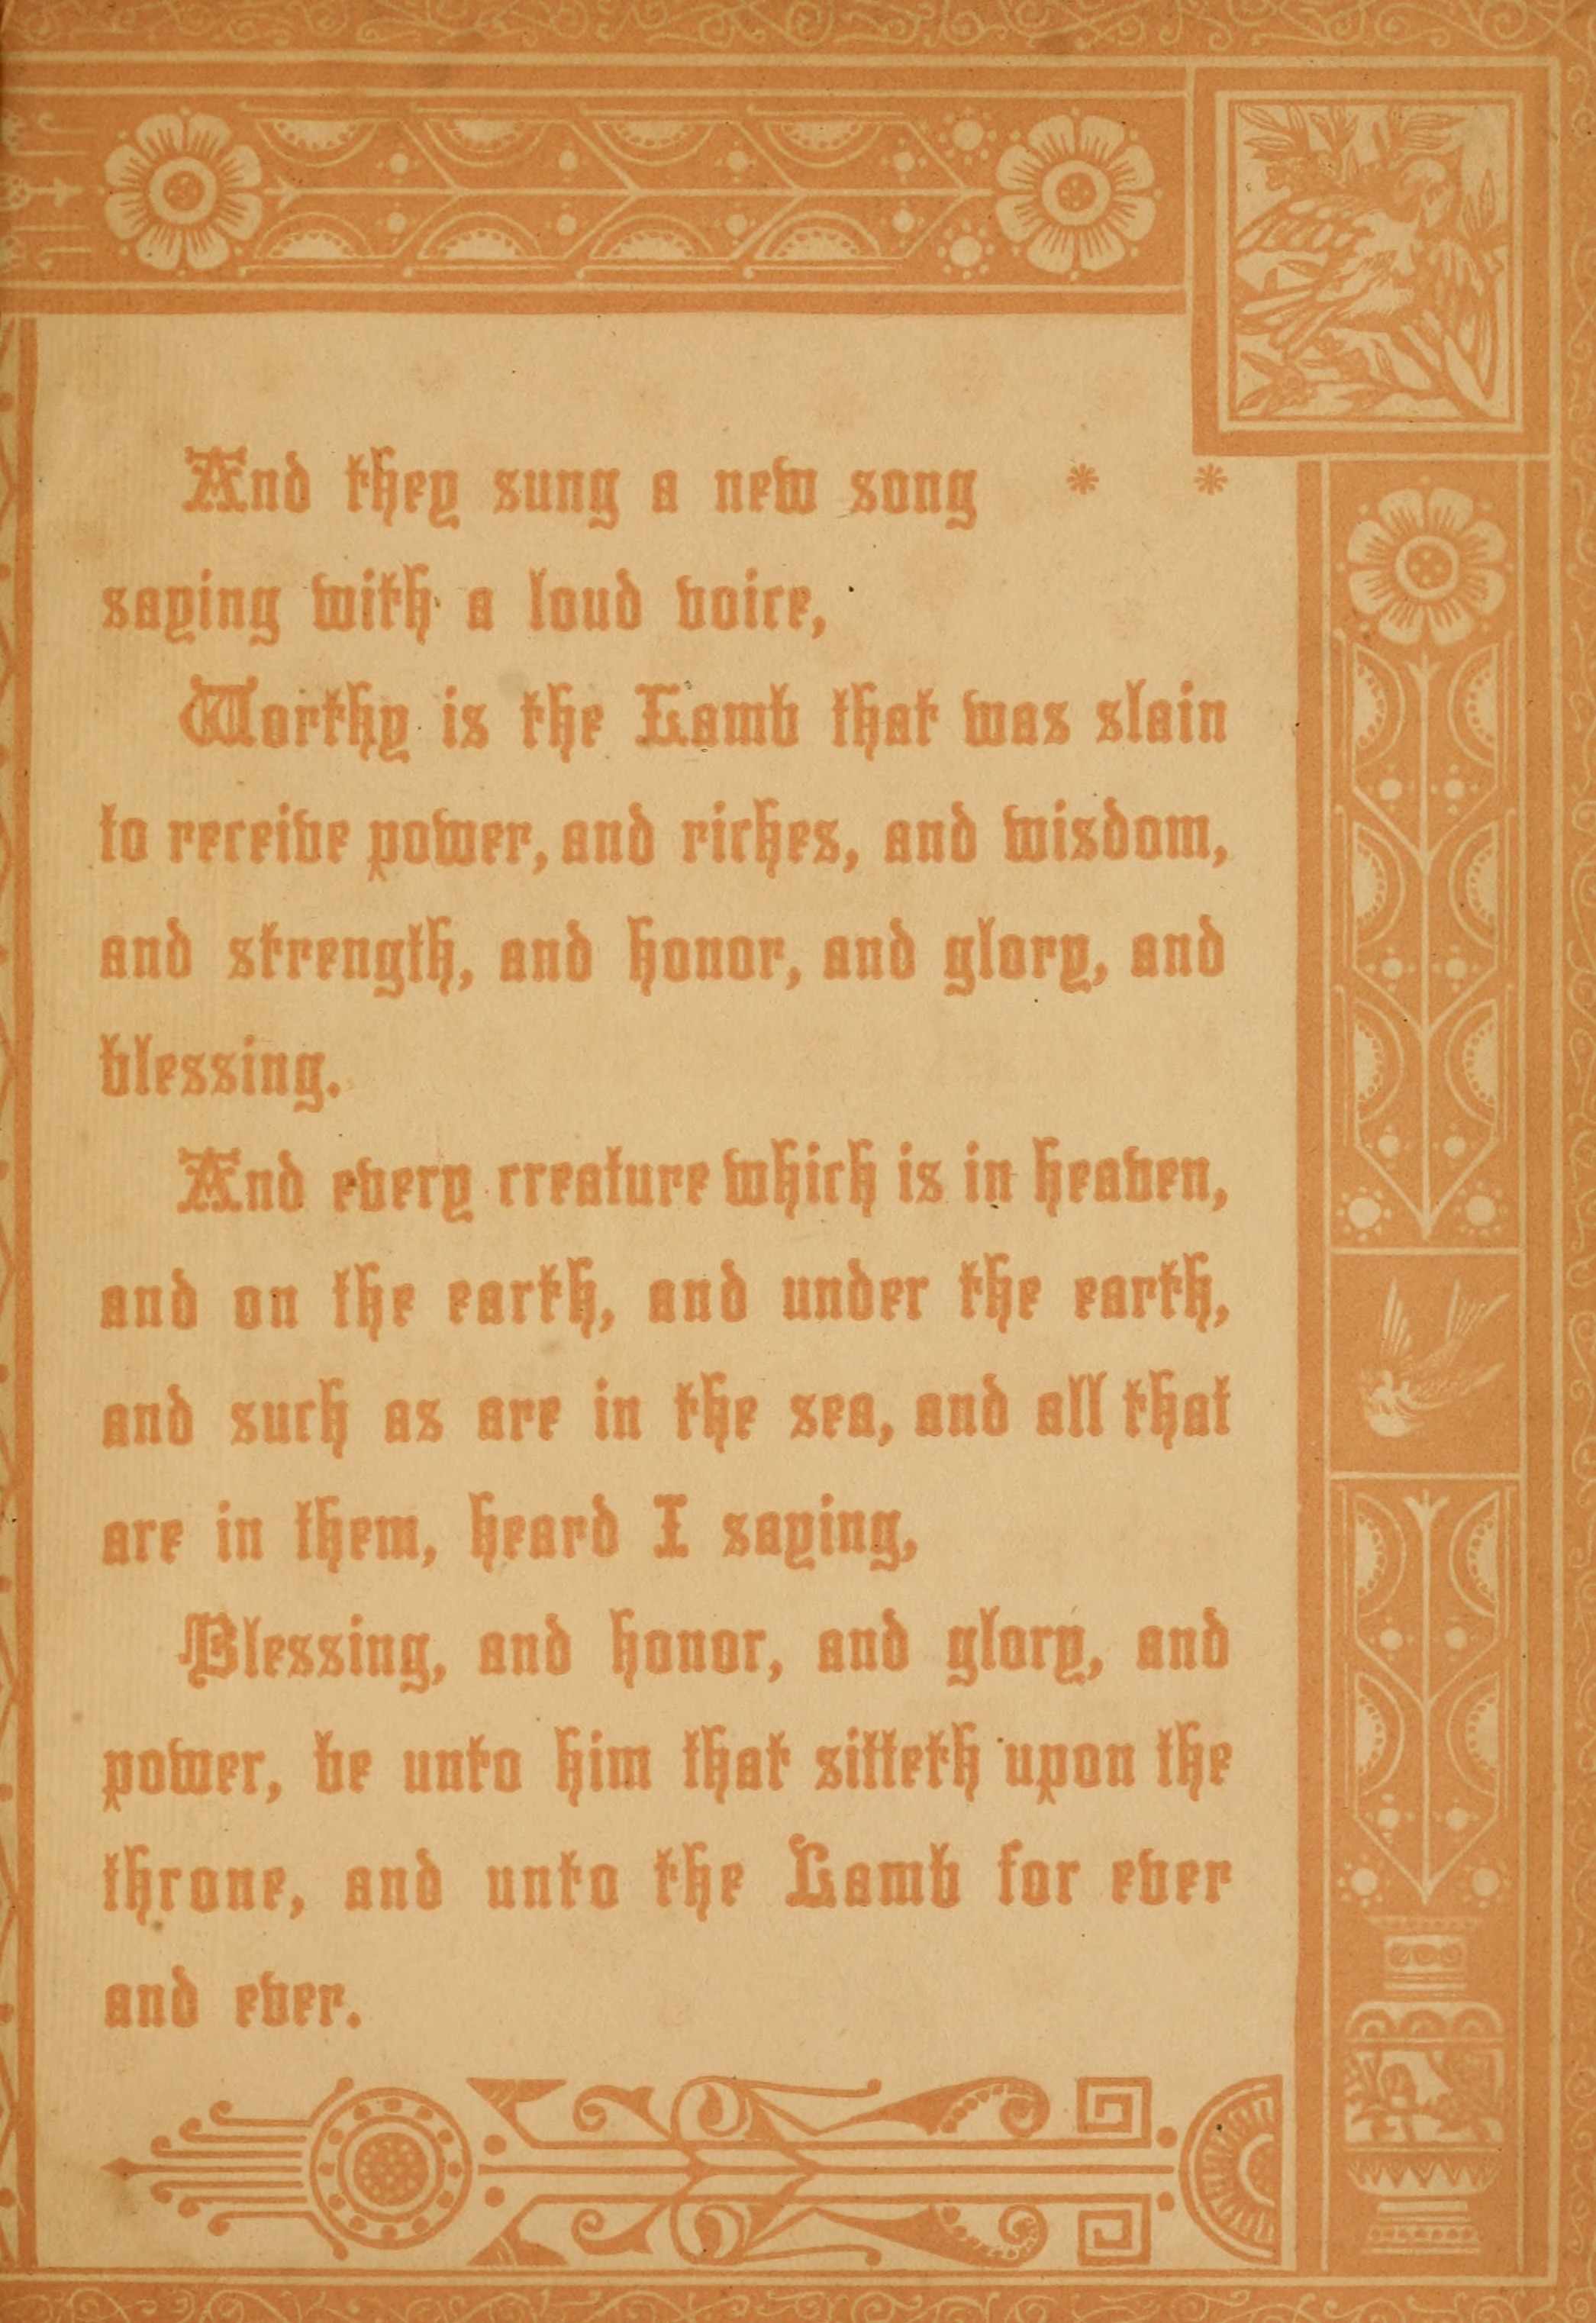 And they sung a new song * *
saying with a loud voice,
Worthy is the Lamb that was slain
to receive power, and riches, and wisdom,
and strength, and honor, and glory, and
blessing.
And every creature which is in heaven,
and on the earth, and under the earth,
and such as are in the sea, and all that
are in them, heard I saying,
Blessing, and honor, and glory, and
power, be unto him that sitteth upon the
throne, and unto the Lamb for ever
and ever.